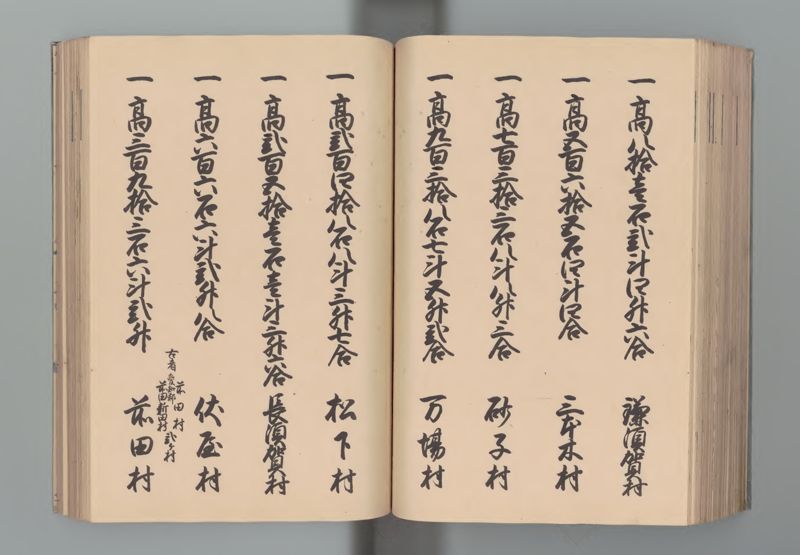 一 高八拾壱石弐斗四升六合 鎌須賀村
一 高五百六拾五石四斗四合 三本木村
一 高七百三拾三石八斗八升三合 砂子村
一 高九百三拾八石七斗五升弐合 万場村
一 高弐百四拾八石八斗三升七合 松下村
一 高弐百五拾壱石壱斗三升六合 長須賀村
一 高六百六石六斗弐升八合 伏屋村
一 高三百九拾三石六斗弐升 前田村
古者 前田村
愛知郡
前田新田村 弐ヶ村